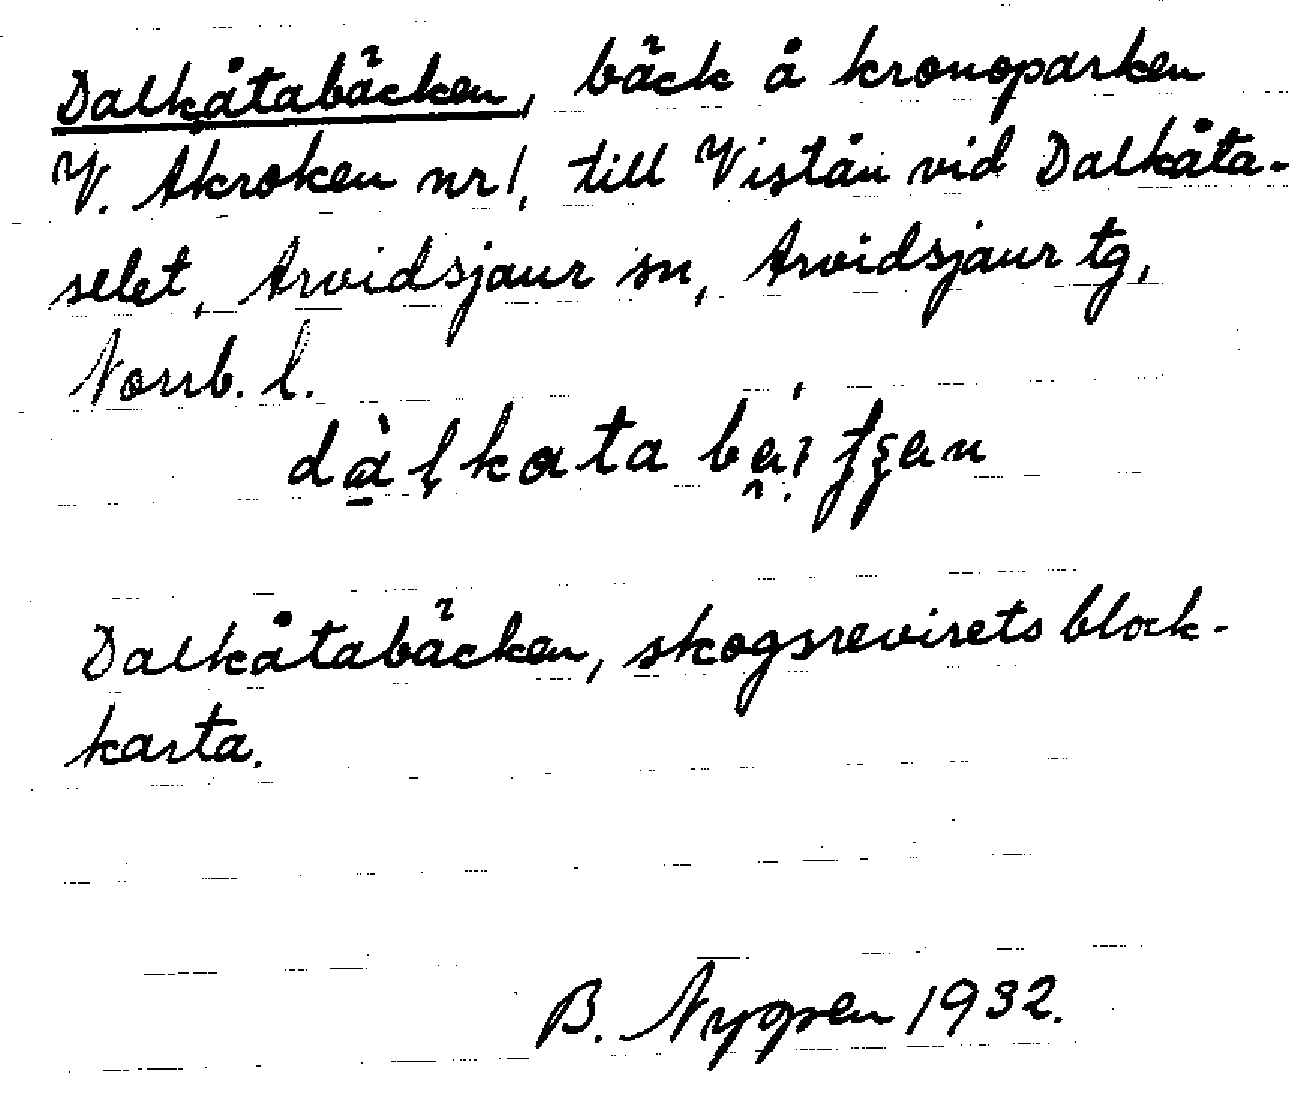 Dalkåtabäcken, bäck å kronoparken
V. Akroken nr 1, till Viståu vid Dalkåta-
selet, Arvidsjaur sn, Arvidsjaur tg,
Norrb. l.
Dalkåtabäcken, skogsrevirets block-
karta.
B. Nygren 1932.